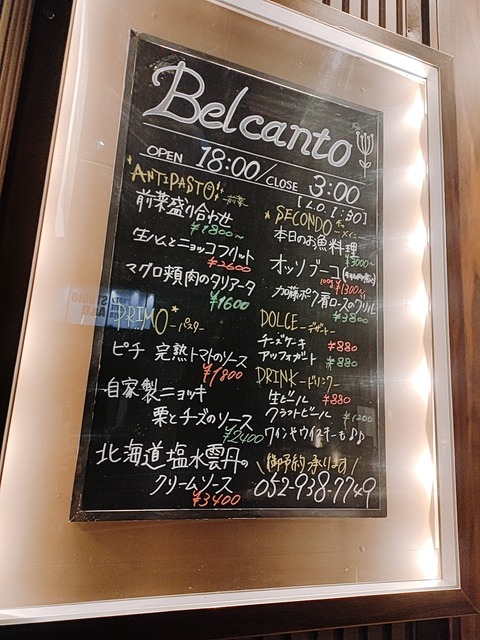 Belcanto
OPEN 18:00 / CLOSE 3:00
[L.O.1:30]
ANTIPASTO -前菜-
前菜盛り合わせ
¥1800〜
生ハムとニョッコフリット
¥2600
マグロ頬肉のタリアータ
¥1600
PRIMO -パスタ-
ピチ 完熟トマトのソース
¥1800
自家製ニョッキ
栗とチーズのソース
¥2400
北海道塩水雲丹の
クリームソース
¥3400
SECONDO -メイン-
本日のお魚料理
¥3000〜
オッソブーコ
100g ¥1300〜
加藤ポーク肩ロースのグリル
¥3800
DOLCE -デザート-
チーズケーキ ¥880
アッフォガート ¥880
DRINK -ドリンク-
生ビール ¥880
クラフトビール ¥1200
ワインやウイスキーも♪♪
\御予約承ります/
052-938-7749